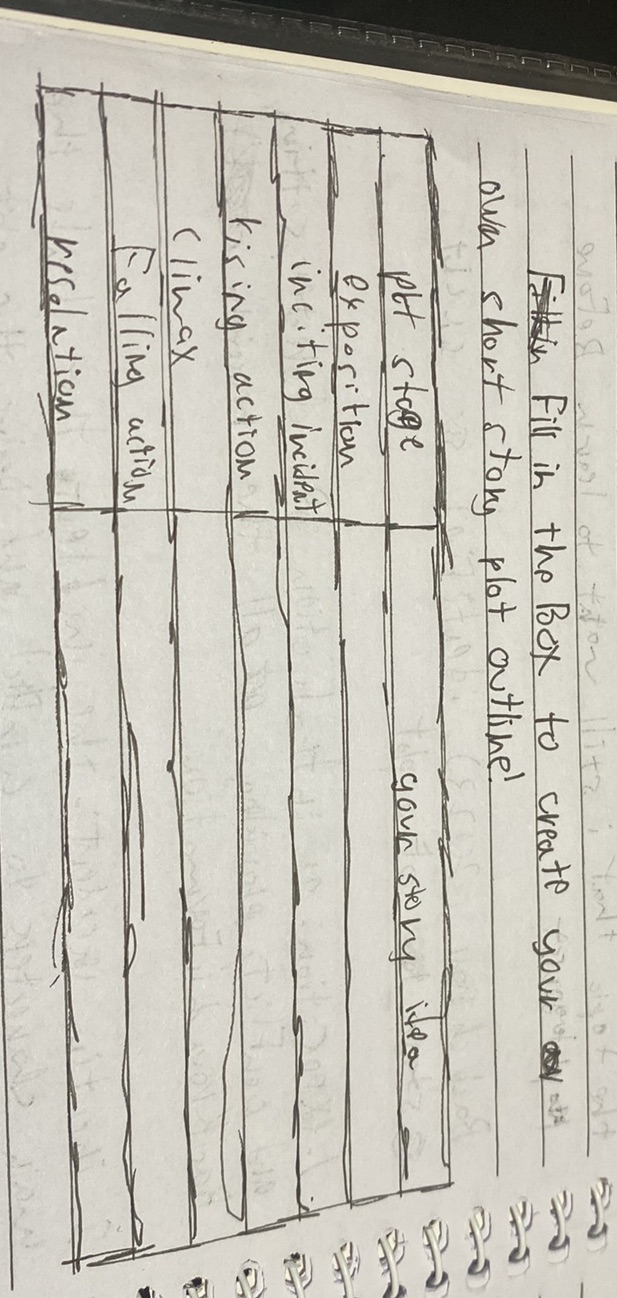 Fill in the Box to create your
own short story plot outline!
plot stage your story idea
exposition
inciting incident
Rising action
Climax
Falling action
resolution